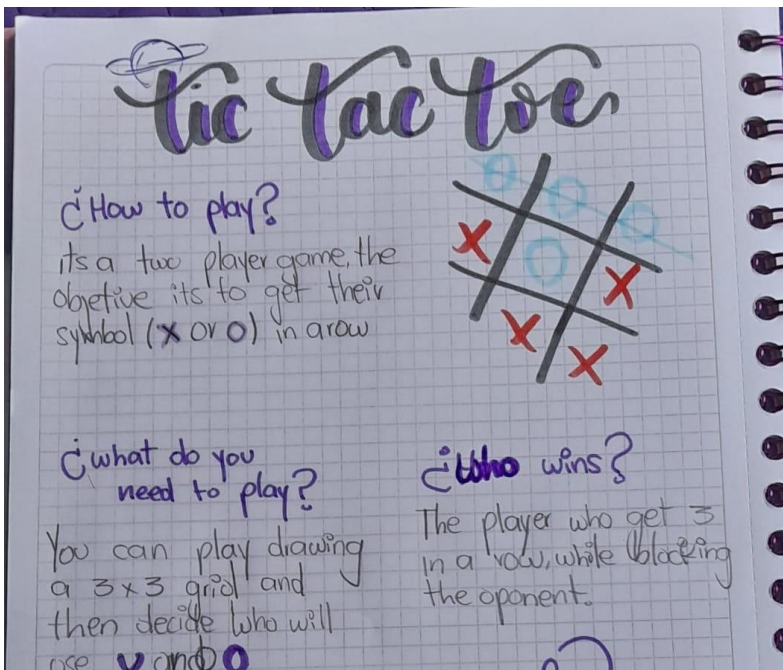 Tic Tac Toe
¿How to play?
its a two player game, the
objetive its to get their
symbol (x or o) in a row
¿what do you
need to play?
You can play drawing
a 3x3 grid and
then decide who will
use x and o
¿Who wins?
The player who get 3
in a row, while blocking
the oponent.